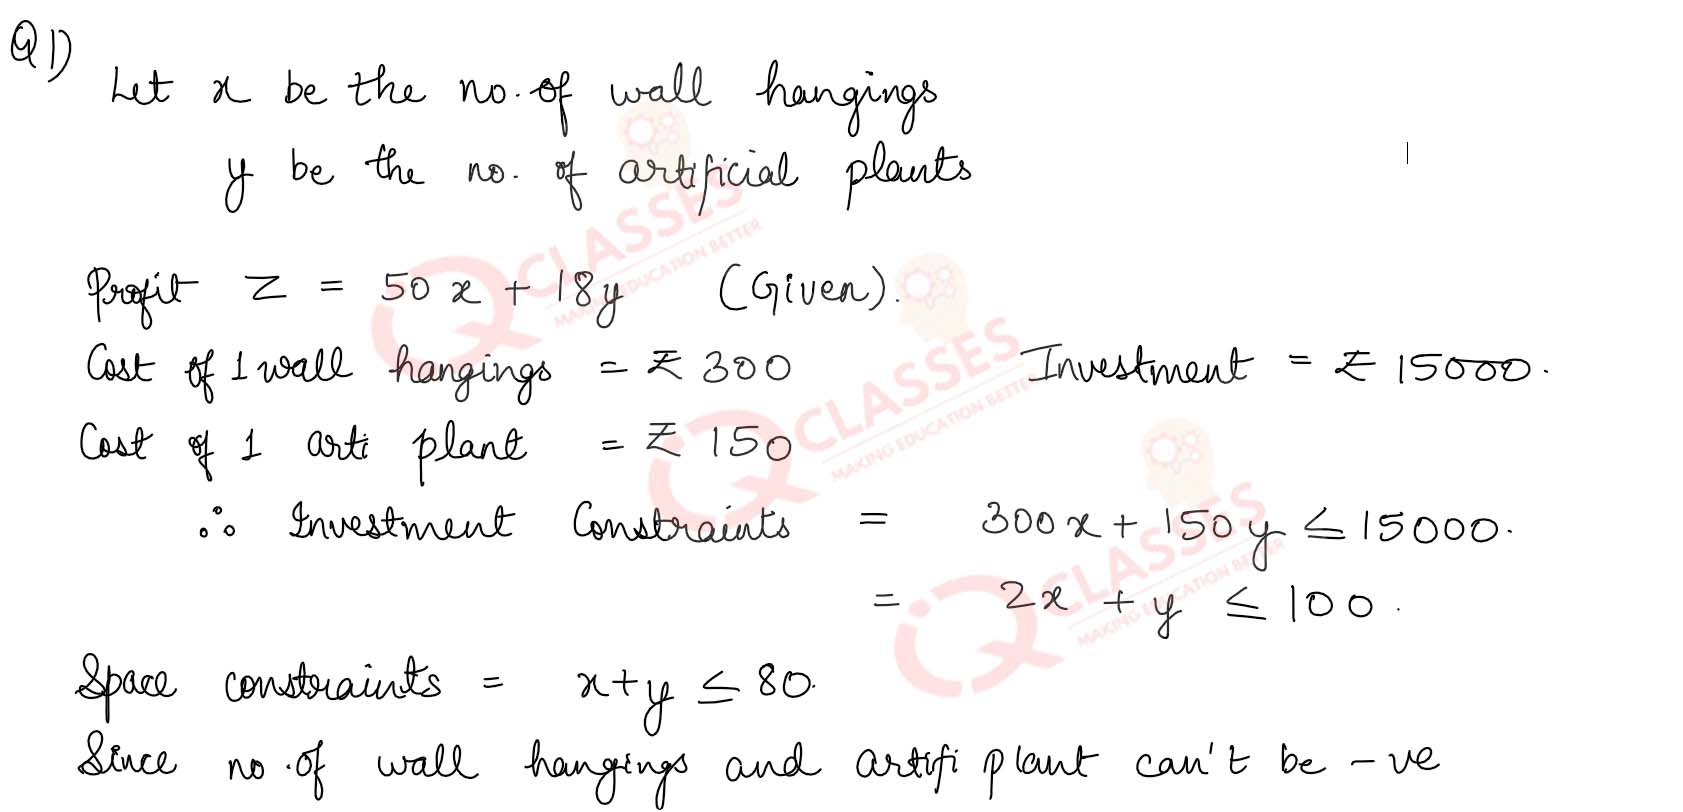 Q1)
Let x be the no. of wall hangings
y be the no. of artificial plants
Profit Z = 50x + 18y (Given).
Cost of 1 wall hangings = ₹ 300 Investment = ₹ 15000.
Cost of 1 arti plant = ₹ 150
∴ Investment Constraints = 300x + 150y ≤ 15000.
= 2x + y ≤ 100.
Space constraints = x+y ≤ 80.
Since no. of wall hangings and artifi plant can't be -ve
iQ CLASSES
MAKING EDUCATION BETTER
iQ CLASSES
MAKING EDUCATION BETTER
iQ CLASSES
MAKING EDUCATION BETTER